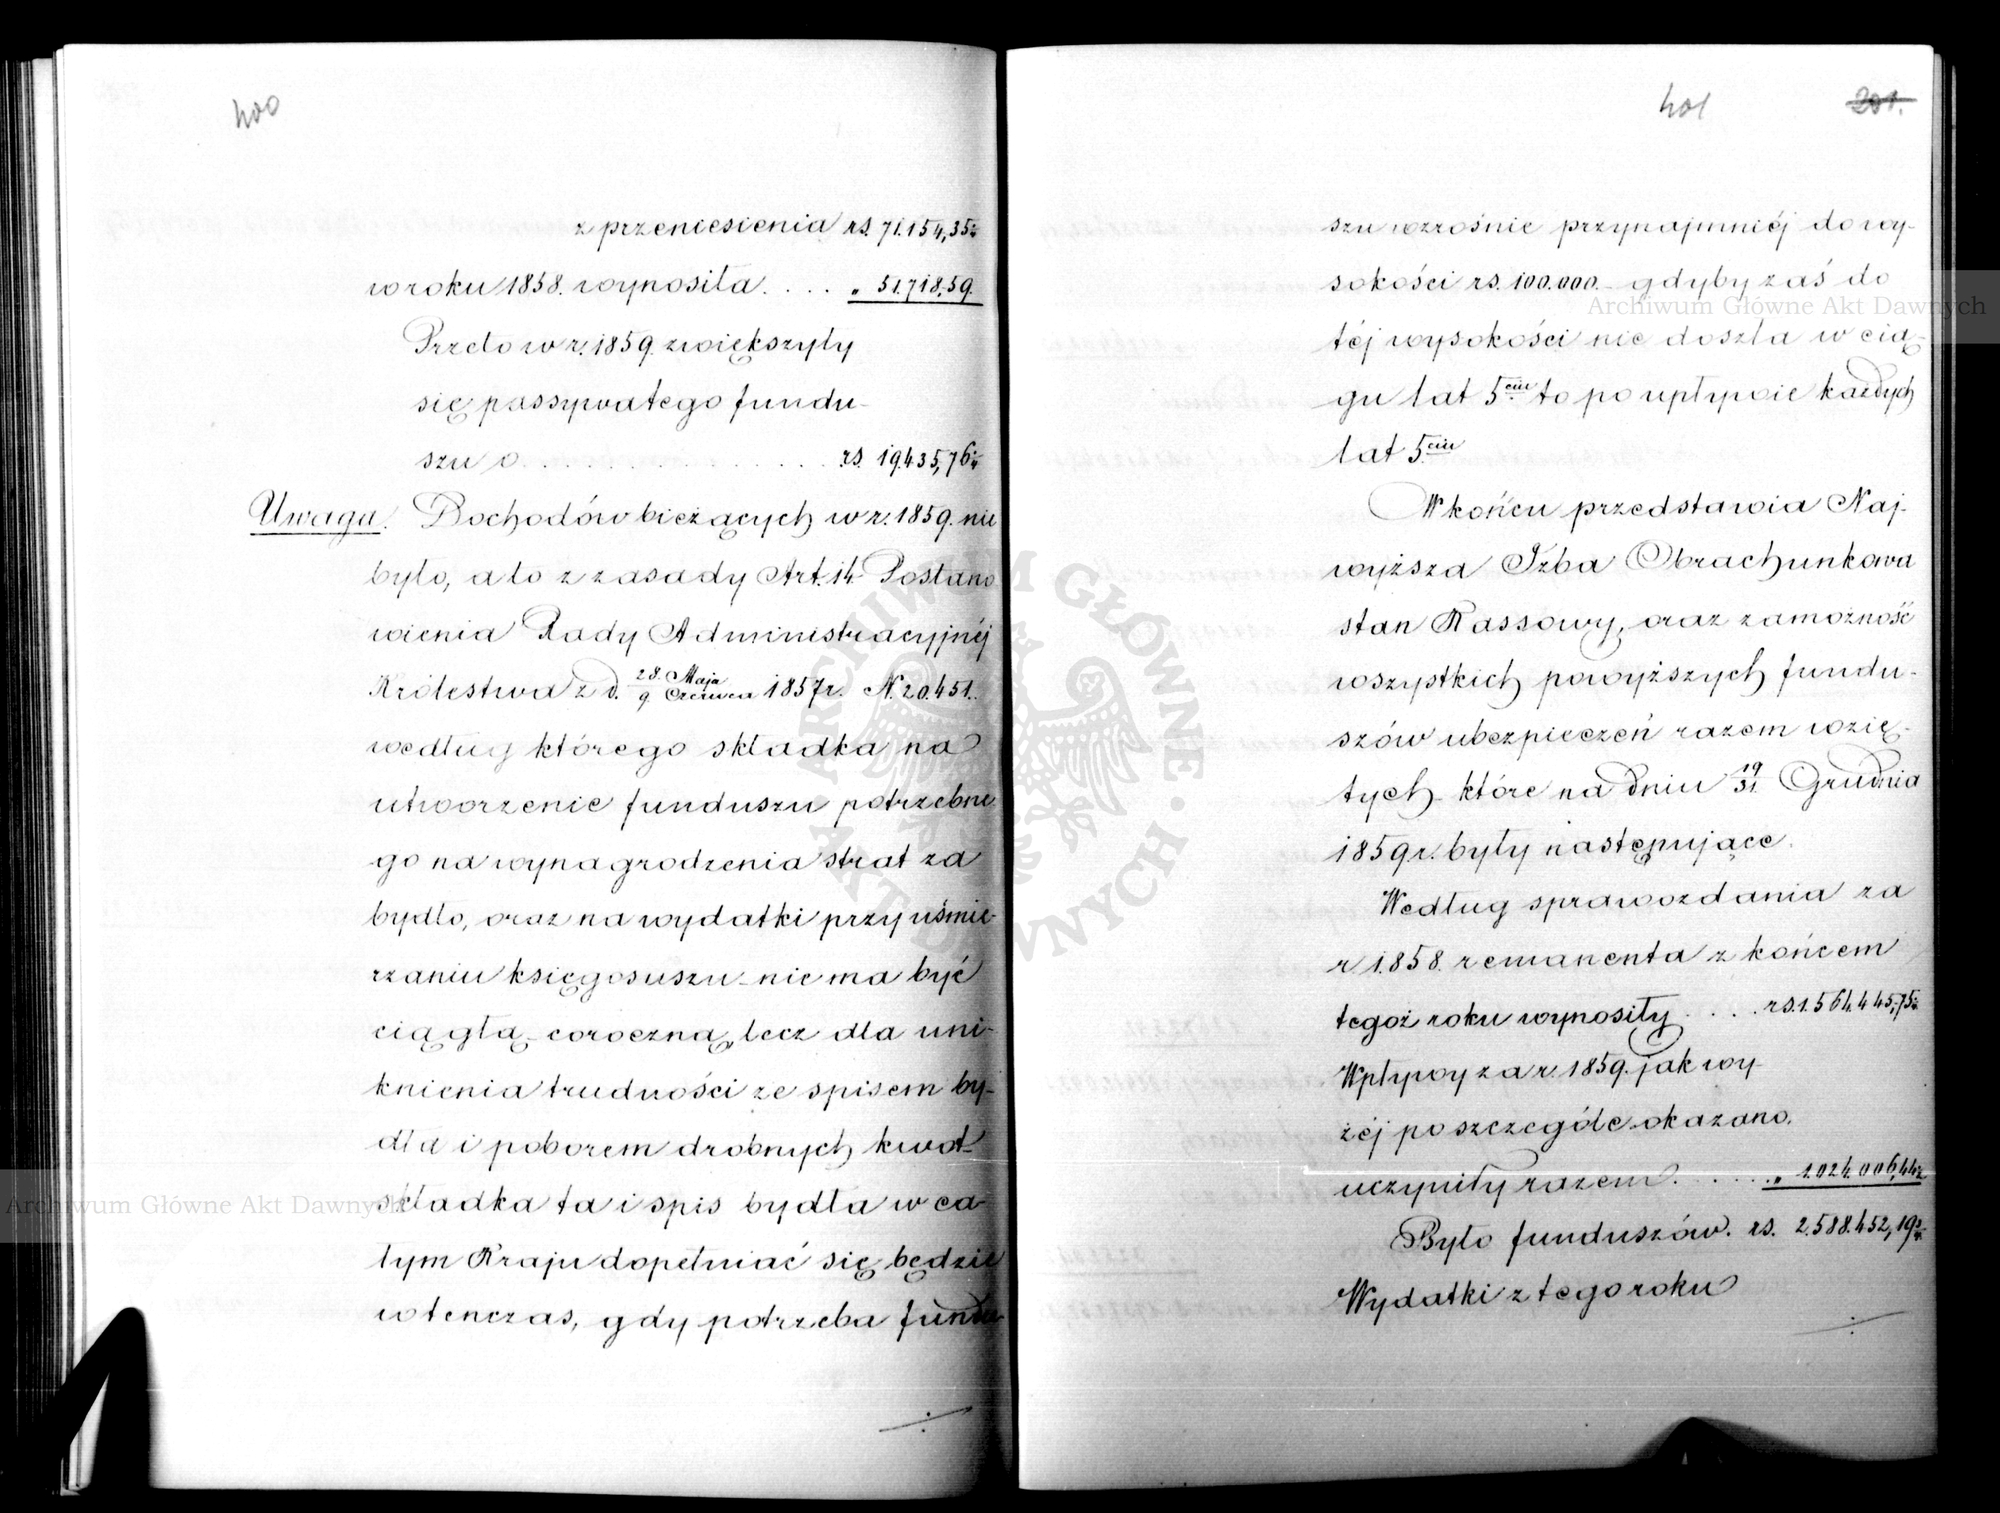 400
z przeniesienia rs. 71.154,35
w roku 1858. wynosiła . . . . „ 51.718,59.
Przeto w r. 1859. zwiększyły
się passywa tego fundu-
szu o . . . . . . . . . . . . . rs. 19.435,76
Uwaga. Dochodów bieżących w r. 1859. nie
było, a to z zasady Art. 14 Postano
wienia Rady Administracyjnéj
Królestwa z d. 28. Maja / 9 Czerwca 1857 r. N. 20.451.
według którego składka na
utworzenie funduszu potrzebne
go na wynagrodzenia strat za
bydło, oraz na wydatki przy uśmie-
rzaniu księgosuszu nie ma być
ciągłą coroczną, lecz dla uni-
knienia trudności ze spisem by-
dła i poborem drobnych kwot
składka ta i spis bydła w ca-
łym Kraju dopełniać się będzie
wtenczas, gdy potrzeba fundu-
401 201.
szu wzrośnie przynajmniéj do wy-
sokości rs. 100.000. – gdyby zaś do
téj wysokości nie doszła w cią-
gu lat 5ciu to po upływie każdych
lat 5ciu
W końcu przedstawia Naj-
wyższa Izba Obrachunkowa
stan Kassowy, oraz zamożność
wszystkich powyższych fundu-
szów ubezpieczeń razem wzię-
tych które na dniu 19/31 Grudnia
1859 r. były następujące.
Według sprawozdania za
r 1858. remanenta z końcem
tegoż roku wynosiły . . . . rs. 1.564.445,75
Wpływy za r. 1859. jak wy-
żéj poszczególe okazano.
uczyniły razem . . . . . . „ 1.024.006,44
Było funduszów. rs. 2.588.452,19
Wydatki z tego roku
Archiwum Główne Akt Dawnych
Archiwum Główne Akt Dawnych
ARCHIWUM GŁÓWNE · AKT DAWNYCH ·